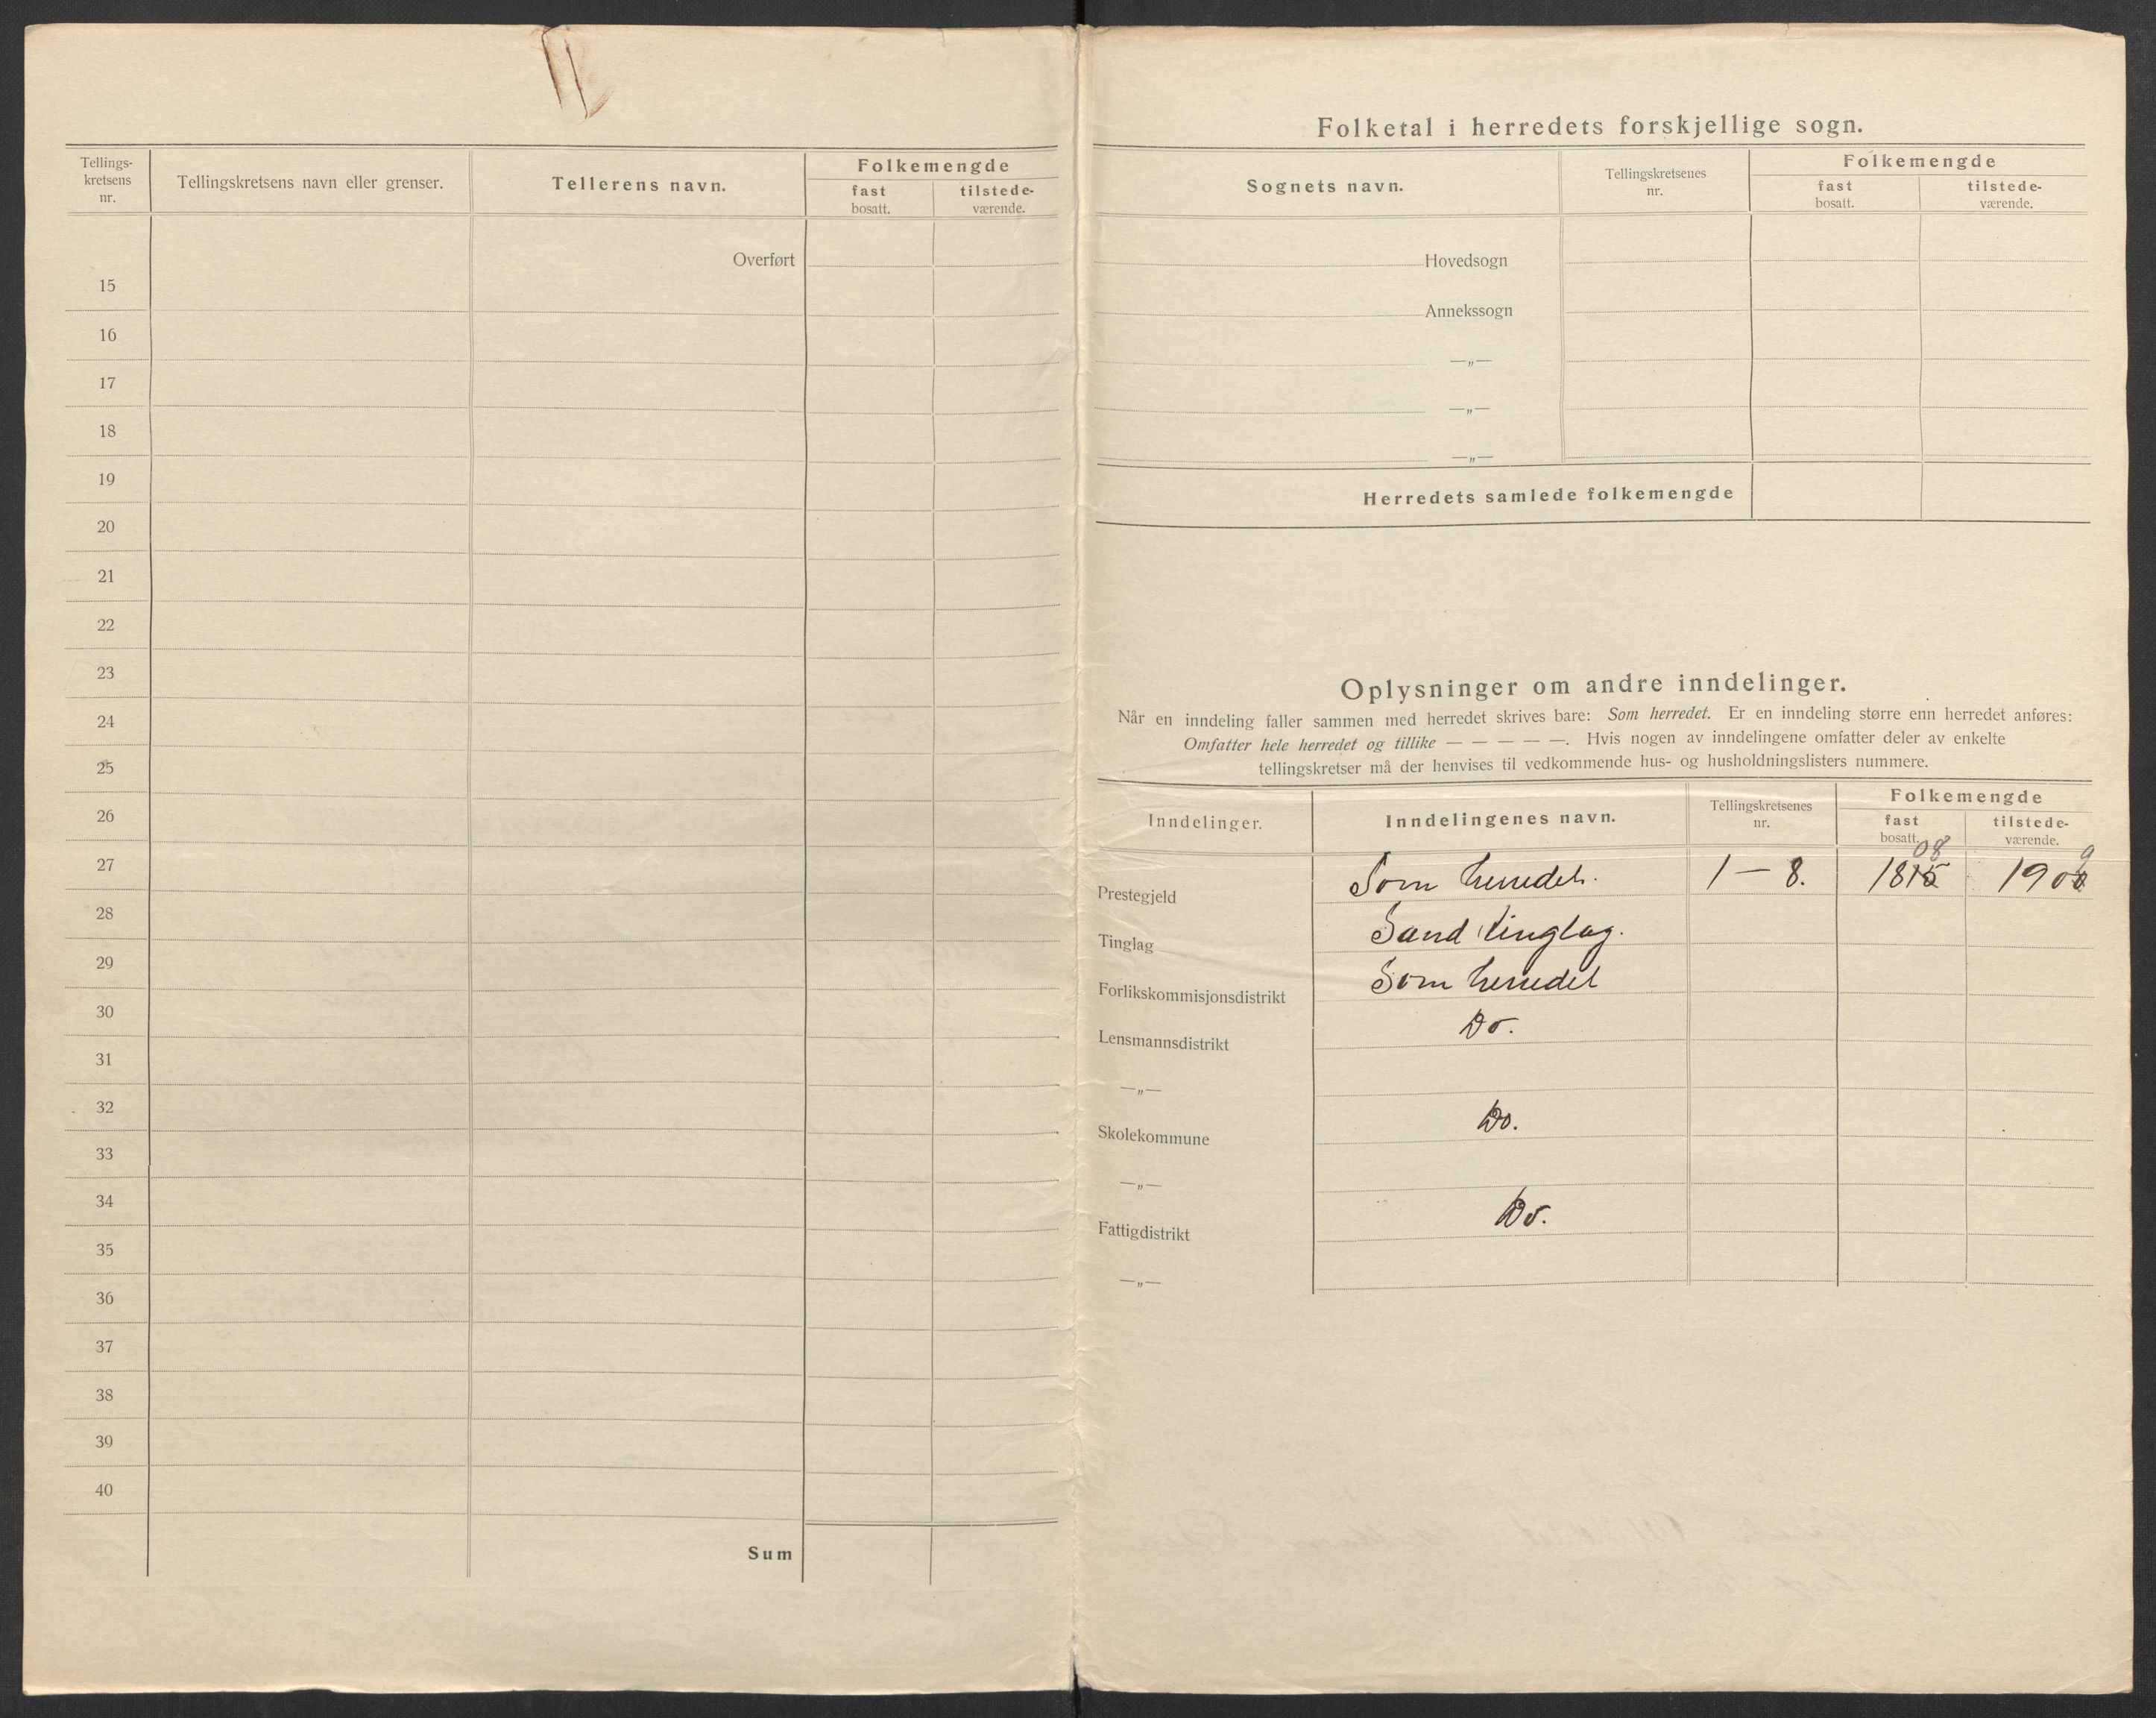 Tellings-
kretsens
nr.
Tellingskretsens navn eller grenser.
Tellerens navn.
Folkemengde
fast
bosatt.
tilstede-
værende.
Overført
15
16
17
18
19
20
21
22
23
24
25
26
27
28
29
30
31
32
33
34
35
36
37
38
39
40
Sum
Folketal i herredets forskjellige sogn.
Sognets navn.
Tellingskretsenes
nr.
Folkemengde
fast
bosatt.
tilstede-
værende.
Hovedsogn
Annekssogn
—„—
—„—
—„—
Herredets samlede folkemengde
Oplysninger om andre inndelinger.
Når en inndeling faller sammen med herredet skrives bare: Som herredet. Er en inndeling større enn herredet anføres:
Omfatter hele herredet og tillike — — — — —. Hvis nogen av inndelingene omfatter deler av enkelte
tellingskretser må der henvises til vedkommende hus- og husholdningslisters nummere.
Inndelinger.
Inndelingenes navn.
Tellingskretsenes
nr.
Folkemengde
fast
bosatt.
tilstede-
værende.
08
9
Prestegjeld Som herredet. 1 – 8. 1815 1900
Tinglag Sand tinglag.
Forlikskommisjonsdistrikt Som herredet
Lensmannsdistrikt Do.
—„—
Skolekommune Do.
—„—
Fattigdistrikt Do.
—„—